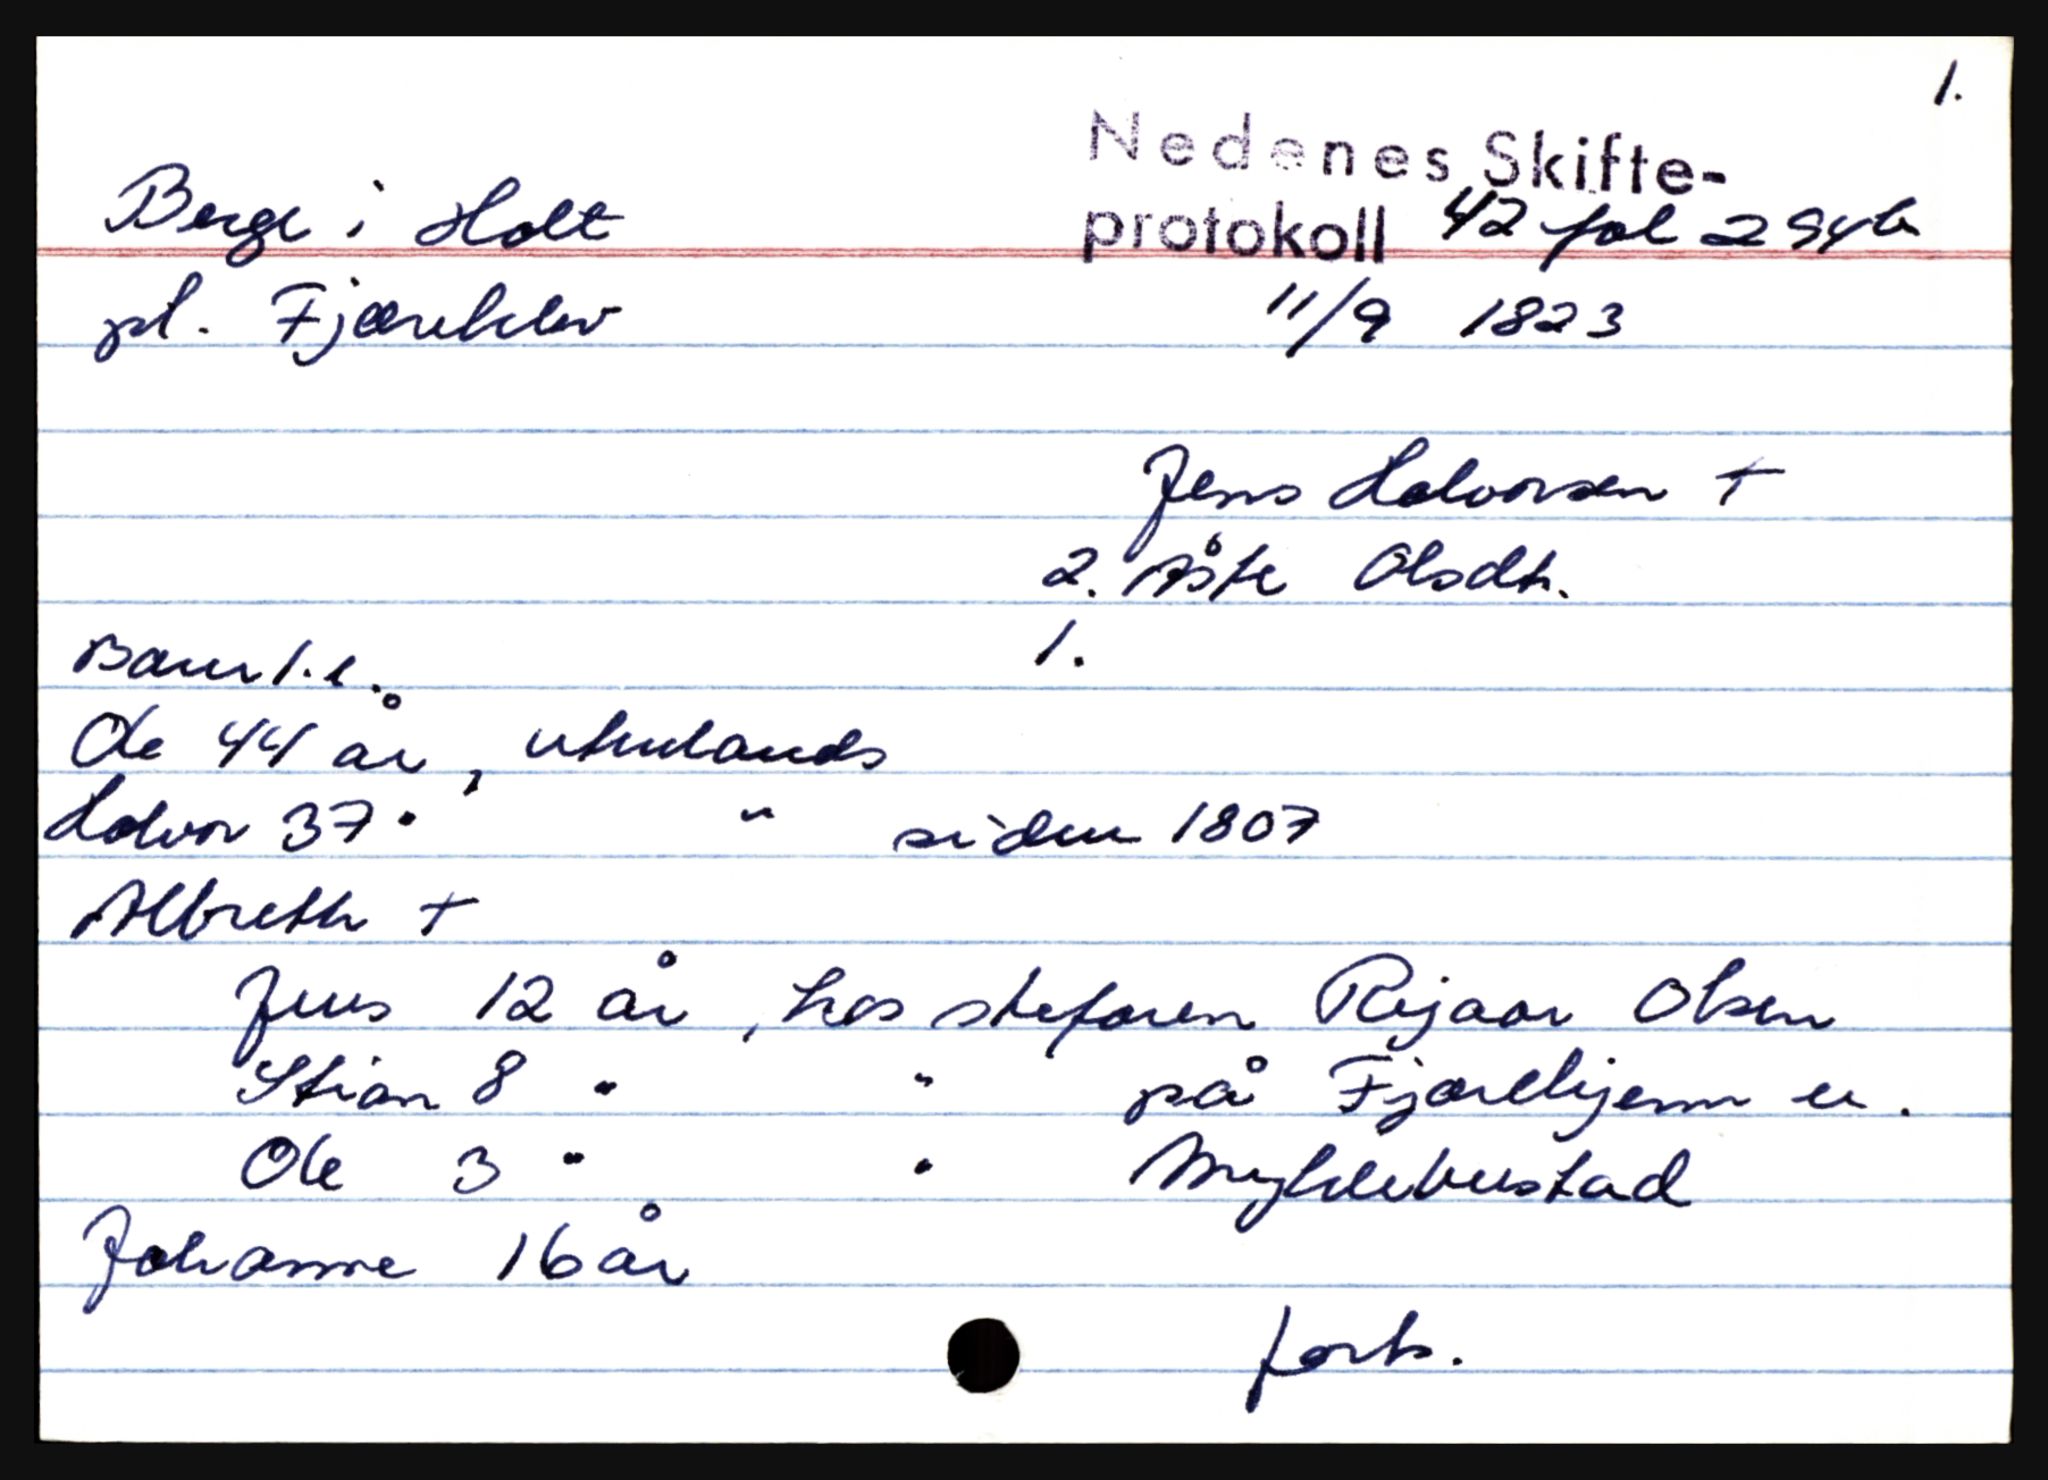 1.
Nedenes Skifte-
Berge i Holt protokoll 42 fol 294b
pl. Fjæreklev 11/9 1823
Jens Halvorsen +
2. Åste Olsdtr.
Barn 1. e. 1.
Ole 44 år, utenlands
Halvor 37 " " siden 1807
Albreth +
Jens 12 år, hos stefaren Rejaar Olsen
Stian 8 " " på Fjærekjenn u.
Ole 3 " " Myklebustad
Johanne 16 år
forts.